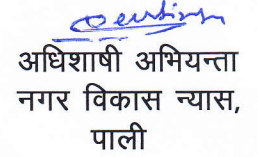 अधिशाषी अभियन्ता
नगर विकास न्यास,
पाली